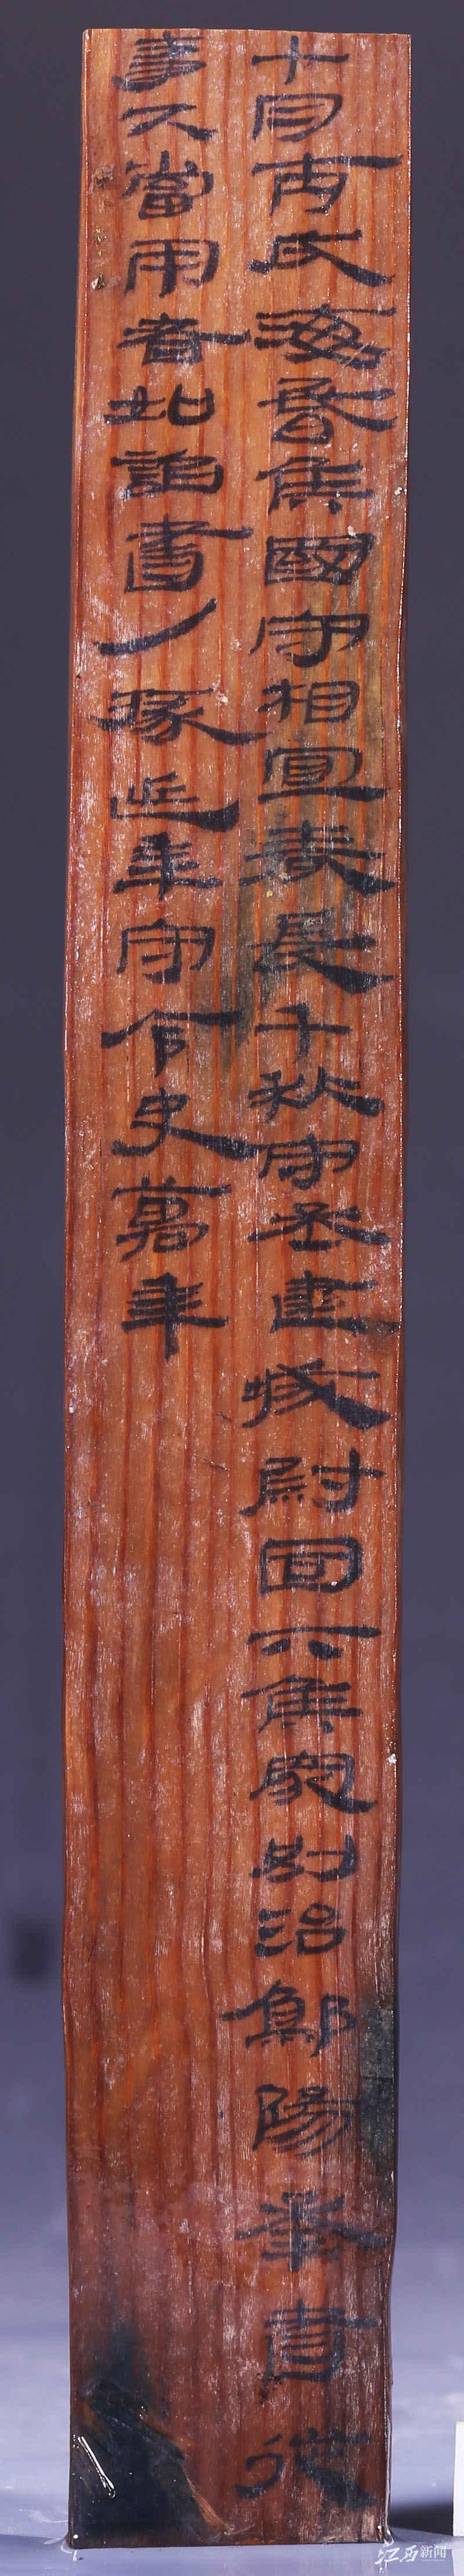 十月丙辰海昏侯國守相宜春長千秋守丞建成尉回下侯家別治鄡陽承書從
事下當用者如詔書/掾延年守令史萬年
江西新闻